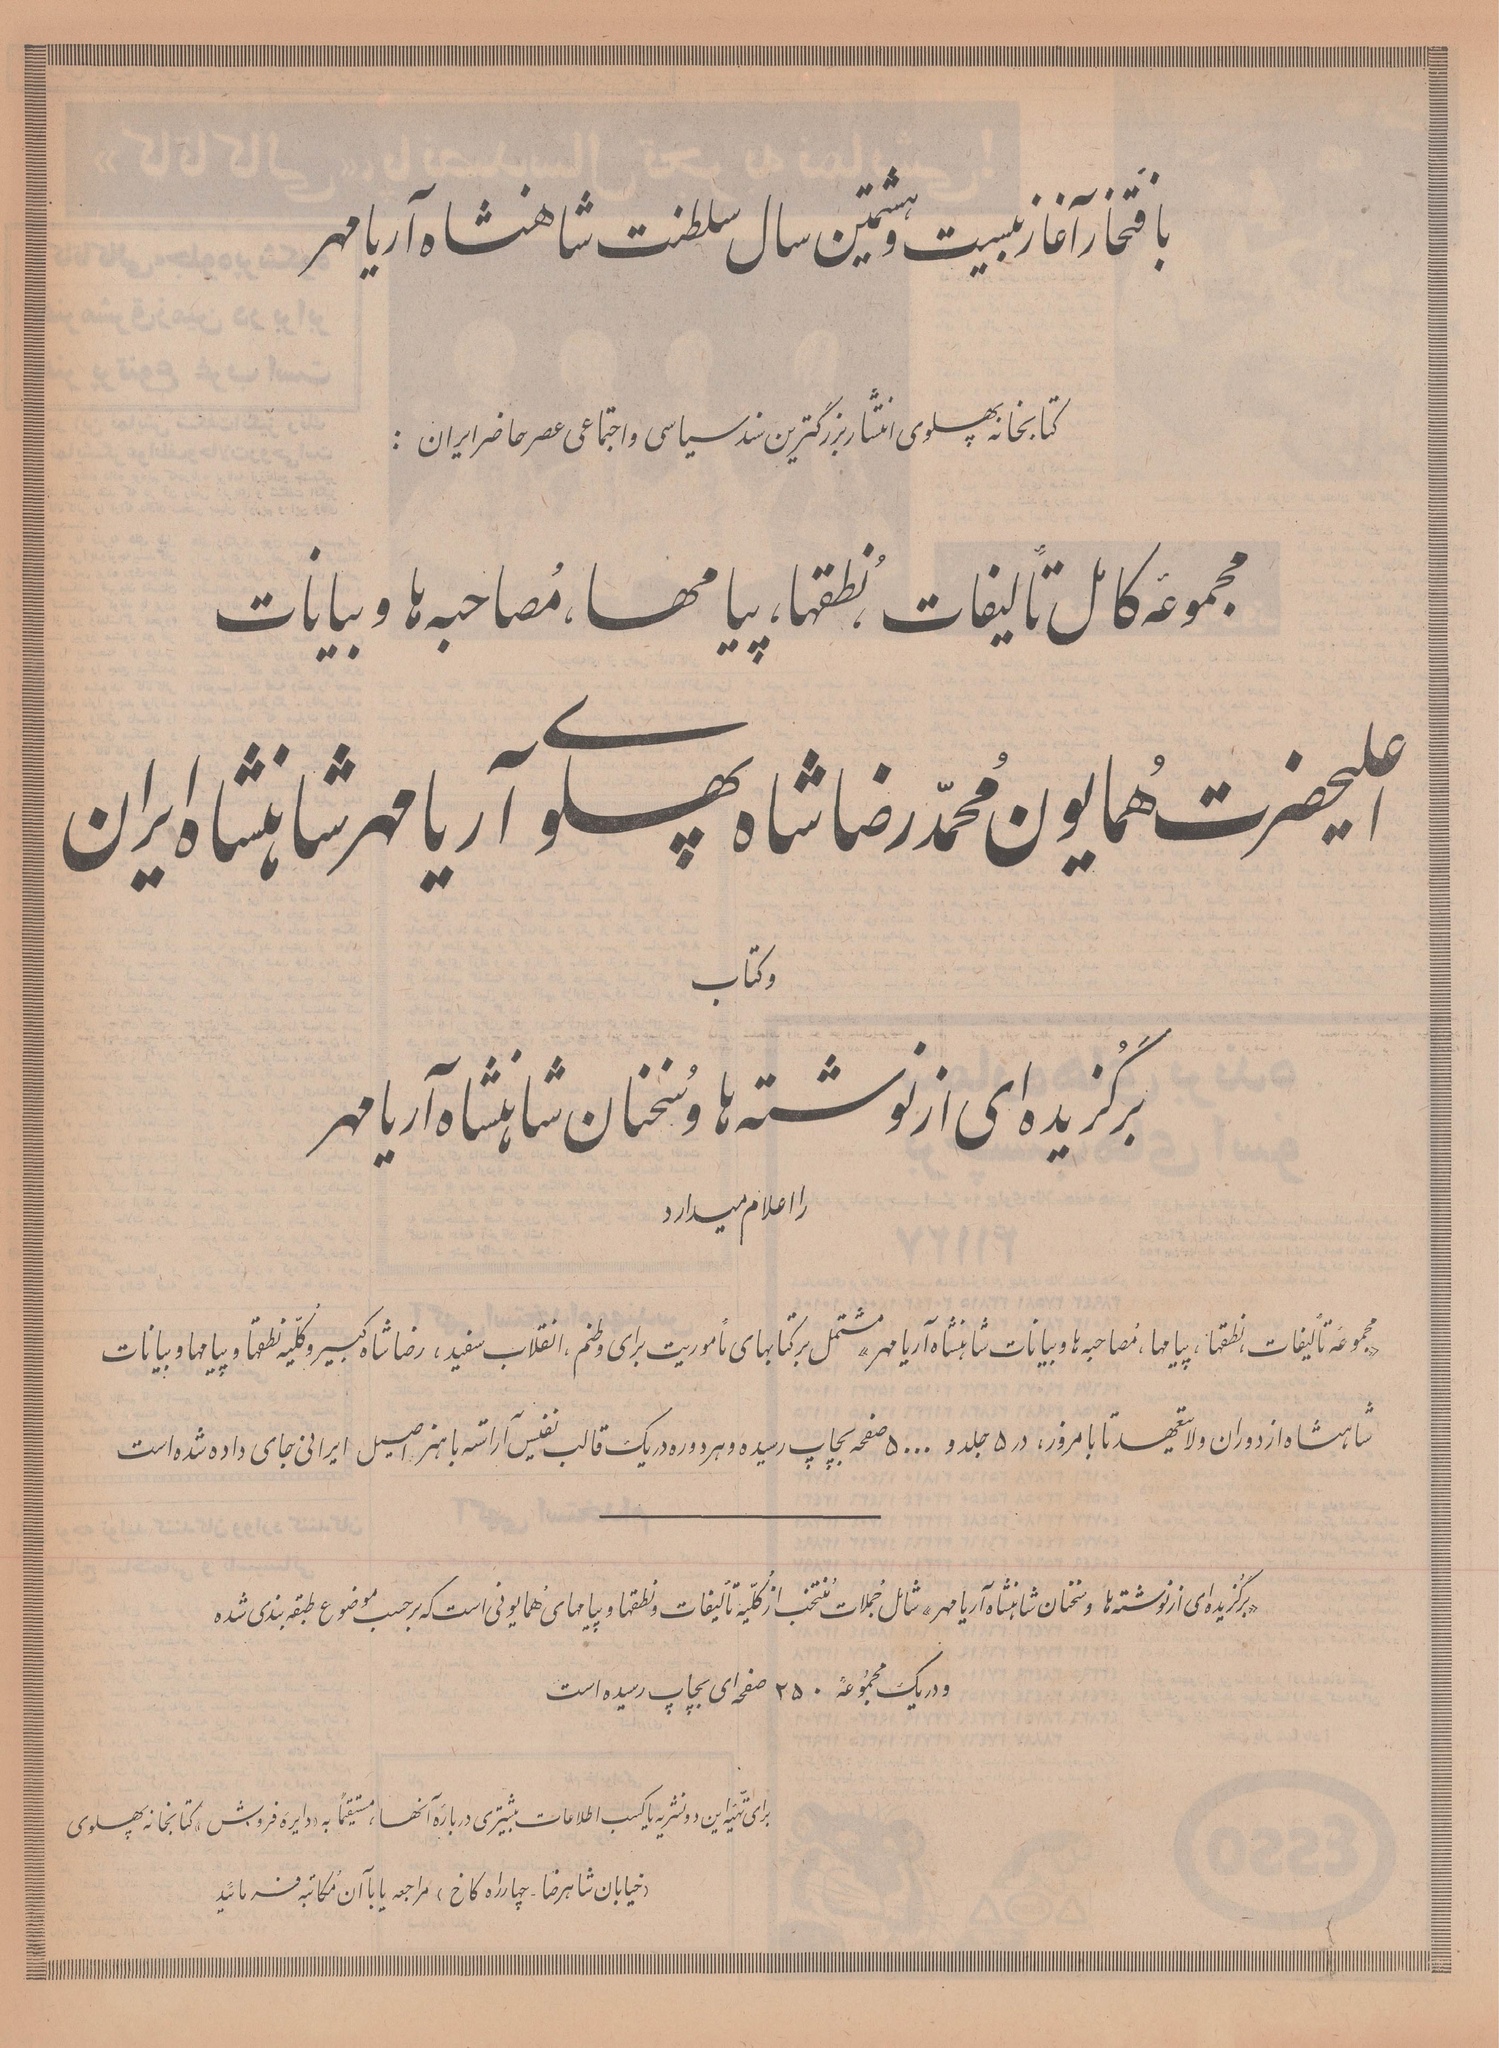 بافتخار آغاز بیست و هشتمین سال سلطنت شاهنشاه آریامهر
کتابخانه پهلوی انتشار بزرگترین سند سیاسی و اجتماعی عصر حاضر ایران :
مجموعهٔ کامل تألیفات ، نُطقها ، پیامها ، مُصاحبه‌ها و بیانات
اعلیحضرت هُمایون مُحمّد رضا شاه پهلوی آریامهر شاهنشاه ایران
و کتاب
بَرگُزیده‌ای از نوشته‌ها و سُخنان شاهنشاه آریامهر
را اعلام میدارد
«مجموعهٔ تألیفات ، نطقها ، پیامها ، مُصاحبه‌ها و بیانات شاهنشاه آریامهر» مشتمل بر کتابهای مأموریت برای وطنم ، انقلاب سفید ، رضا شاه کبیر و کُلّیه نطقها و پیامها و بیانات
شاهنشاه از دوران ولایتعهد تا بامروز ، در ۵ جلد و ۵۰۰۰ صفحه بچاپ رسیده و هر دوره در یک قالب نفیس آراسته با هنر اصیل ایرانی جای داده شده است
«برگُزیده‌ای از نوشته‌ها و سخنان شاهنشاه آریامهر» شامل جُملات مُنتخب از کُلّیه تألیفات و نطقها و پیامهای همایونی است که برحسب موضوع طبقه بندی شده
و در یک مجموعهٔ ۲۵۰ صفحه‌ای بچاپ رسیده است
برای تهیّه این دو نشریه یا کسب اطلاعات بیشتری درباره آنها ، مستقیماً به «دایره فروش» کتابخانه پهلوی
(خیابان شاهرضا - چهارراه کاخ) مراجعه یا با آن مُکاتبه فرمائید